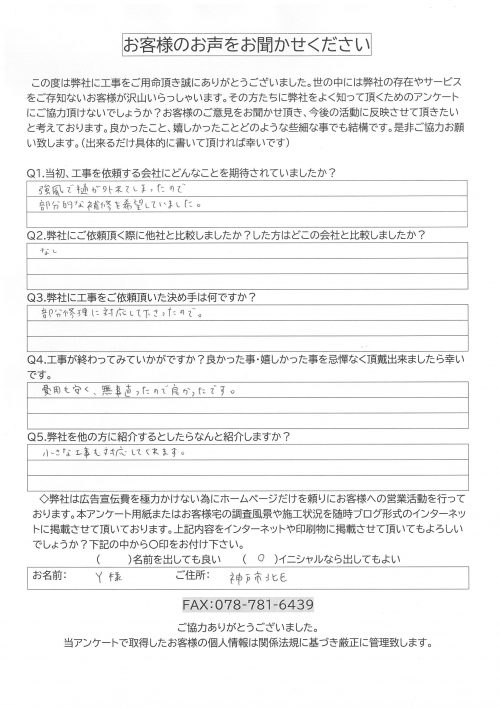 お客様のお声をお聞かせください
この度は弊社に工事をご用命頂き誠にありがとうございました。世の中には弊社の存在やサービス
をご存知ないお客様が沢山いらっしゃいます。その方たちに弊社をよく知って頂くためのアンケート
にご協力頂けないでしょうか？お客様のご意見をお聞かせ頂き、今後の活動に反映させて頂きたい
と考えております。良かったこと、嬉しかったことどのような些細な事でも結構です。是非ご協力お願
い致します。（出来るだけ具体的に書いて頂ければ幸いです）
Q1.当初、工事を依頼する会社にどんなことを期待されていましたか？
強風で樋が外れてしまったので
部分的な補修を希望していました。
Q2.弊社にご依頼頂く際に他社と比較しましたか？した方はどこの会社と比較しましたか？
なし
Q3.弊社に工事をご依頼頂いた決め手は何ですか？
部分修理に対応して下さったので。
Q4.工事が終わってみていかがですか？良かった事・嬉しかった事を忌憚なく頂戴出来ましたら幸い
です。
費用も安く、無事直ったので良かったです。
Q5.弊社を他の方に紹介するとしたらなんと紹介しますか？
小さな工事も対応してくれます。
◇弊社は広告宣伝費を極力かけない為にホームページだけを頼りにお客様への営業活動を行って
おります。本アンケート用紙またはお客様宅の調査風景や施工状況を随時ブログ形式のインターネッ
トに掲載させて頂いております。上記内容をインターネットや印刷物に掲載させて頂いてもよろしい
でしょうか？下記の中から〇印をお付け下さい。
(　　)名前を出しても良い　( 〇 )イニシャルなら出してもよい
お名前：　Y 様　ご住所：　神戸市北区
FAX:078-781-6439
ご協力ありがとうございました。
当アンケートで取得したお客様の個人情報は関係法規に基づき厳正に管理致します。